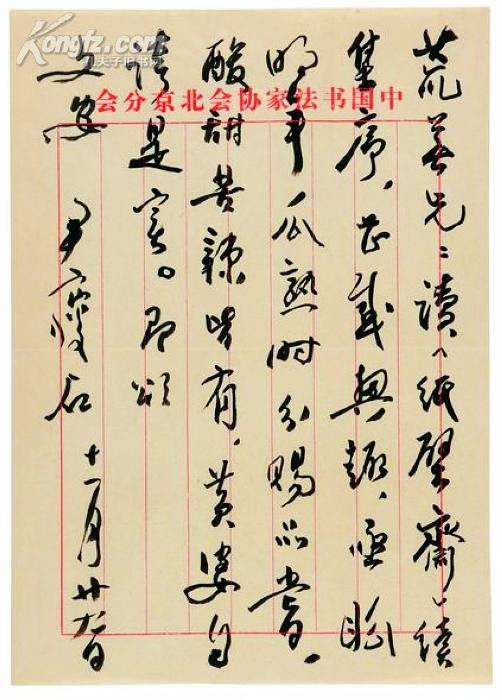 Kongfz.com
孔夫子旧书网
中国书法家协会北京分会
荒芜兄：读《纸壁斋》续
集序，甚感兴趣，盼
明年瓜熟时分赐品尝。
酸甜苦辣皆有，黄婆自
是实。即颂
文安 尹瘦石 十一月廿日